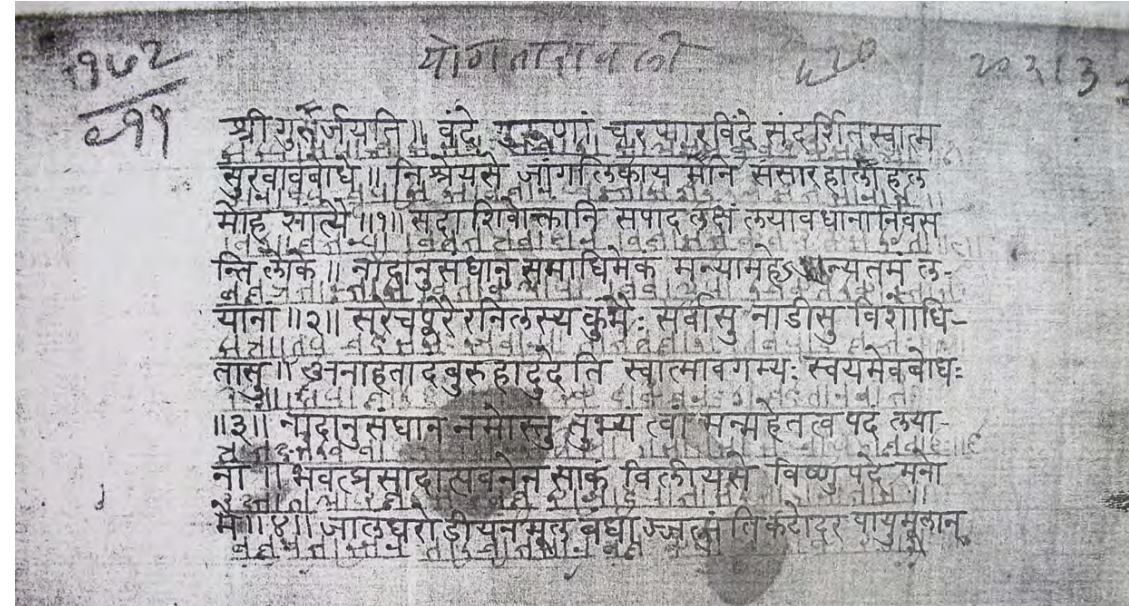 १७२ योगतारावली ५२० २०२१३
८१५
श्री गुरुर्जयति ॥ वंदे गुरूणां चरणारविंदे संदर्शितस्वात्म
सुखावबोधे ॥ निश्रेयसे जांगलिकाय मानि संसारहालाहल
मोह सात्ये ॥१॥ सदाशिवोक्तानि सपादलक्षं लयावधानानिवस
न्ति लोके ॥ नादानुसंधान समाधिमेकं मन्यामहेऽ न्यतमं ल-
यानां ॥२॥ सरेचपूरैरनिलस्य कुंभैः सर्वासु नाडीसु विशोधि-
तासु ॥ अनाहतादंबुरुहादुदेति स्वात्मावगम्यः स्वयमेवबोधः
॥३॥ नादानुसंधान नमोस्तु तुभ्यं त्वां मन्महेतत्व पद लया-
नां ॥ भवत्प्रसादात्पवनेन साकं विलीयसे विष्णुपदे मनो
मे ॥४॥ जालंधरोडीयनमूल बंधा कंटोदर पायुमूलान्